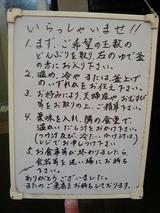 いらっしゃいませ!!
1. まず、ご希望の玉数の
どんぶりを取り、右のゆで釜
の方にお入り下さい。
2. 温め、冷やまたは、釜上げ
のいずれかをお伝え下さい。
3. お好みにより、天婦羅や、おむすび
等をお取りの上、ご精算下さい。
4. 薬味を入れ、隣の食堂で、
温かいだしをおかけ下さい。
(つけダレ及び、冷い、かけつゆは、)
レジでお申しつけ下さい
◇お食事等が終わりましたら、
食器等を洗い場にお持ち
下さい。
ありがとうございました。
またのご来店をお待ちしております。